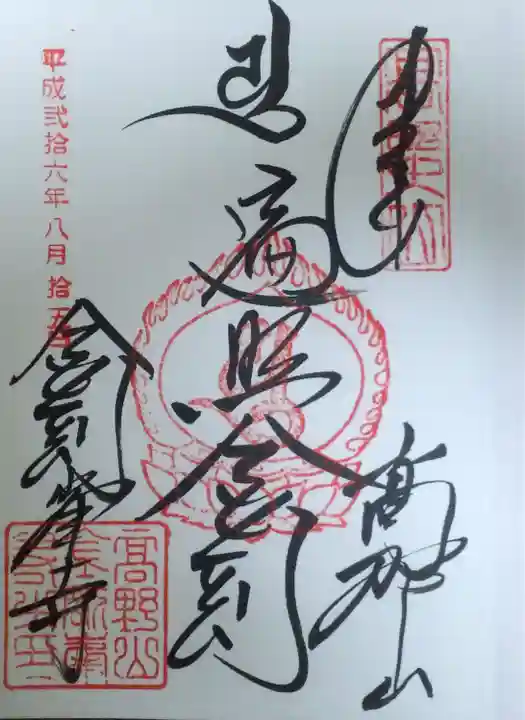 奉拝
高野山
遍照金剛
金剛峯寺
平成弐拾六年八月拾五日
高野山
金剛峯